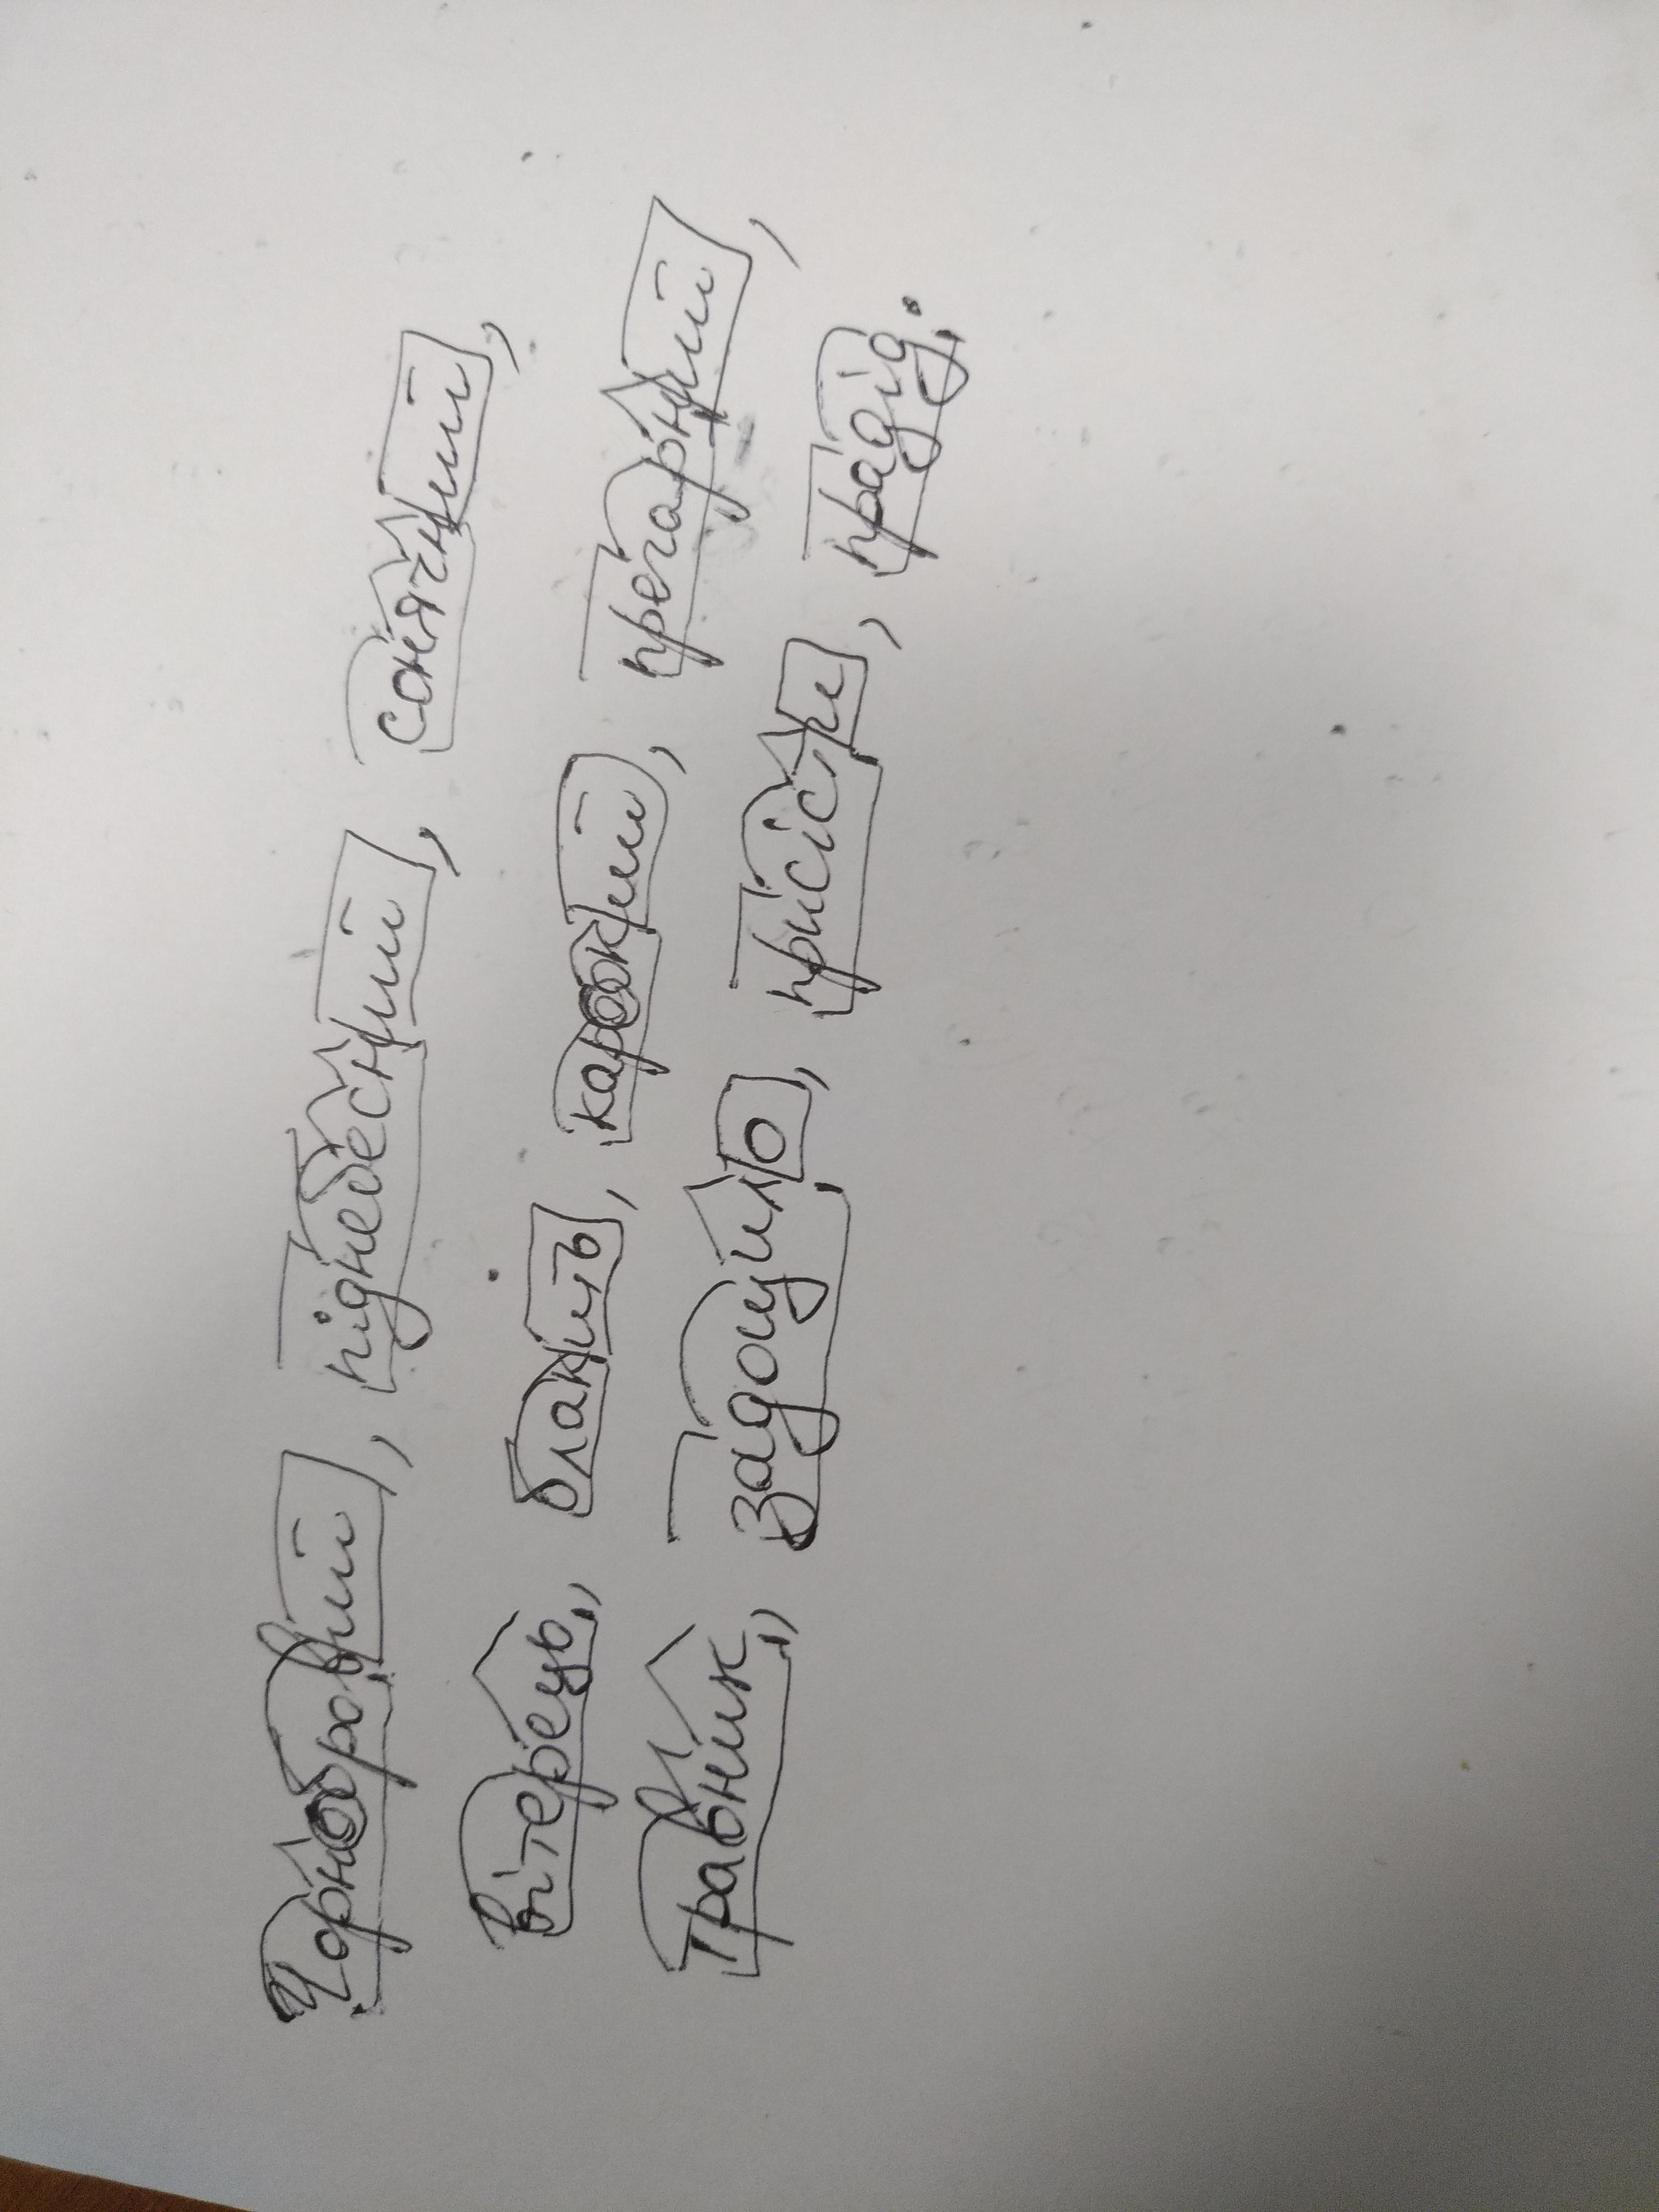 Чорнобровий, піднебесний, сонячний,
Вітерець, блакить, карокий, прегарний,
Травник, задощило, присісти, прадід.